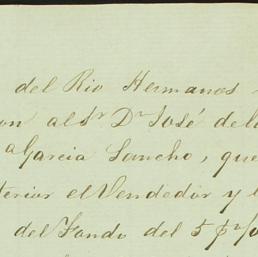 del Rio Hermanos
on al Sr Dn José del
a Garcia Sancho, que
terior el Vendedor y
del Fondo del 5 pr %